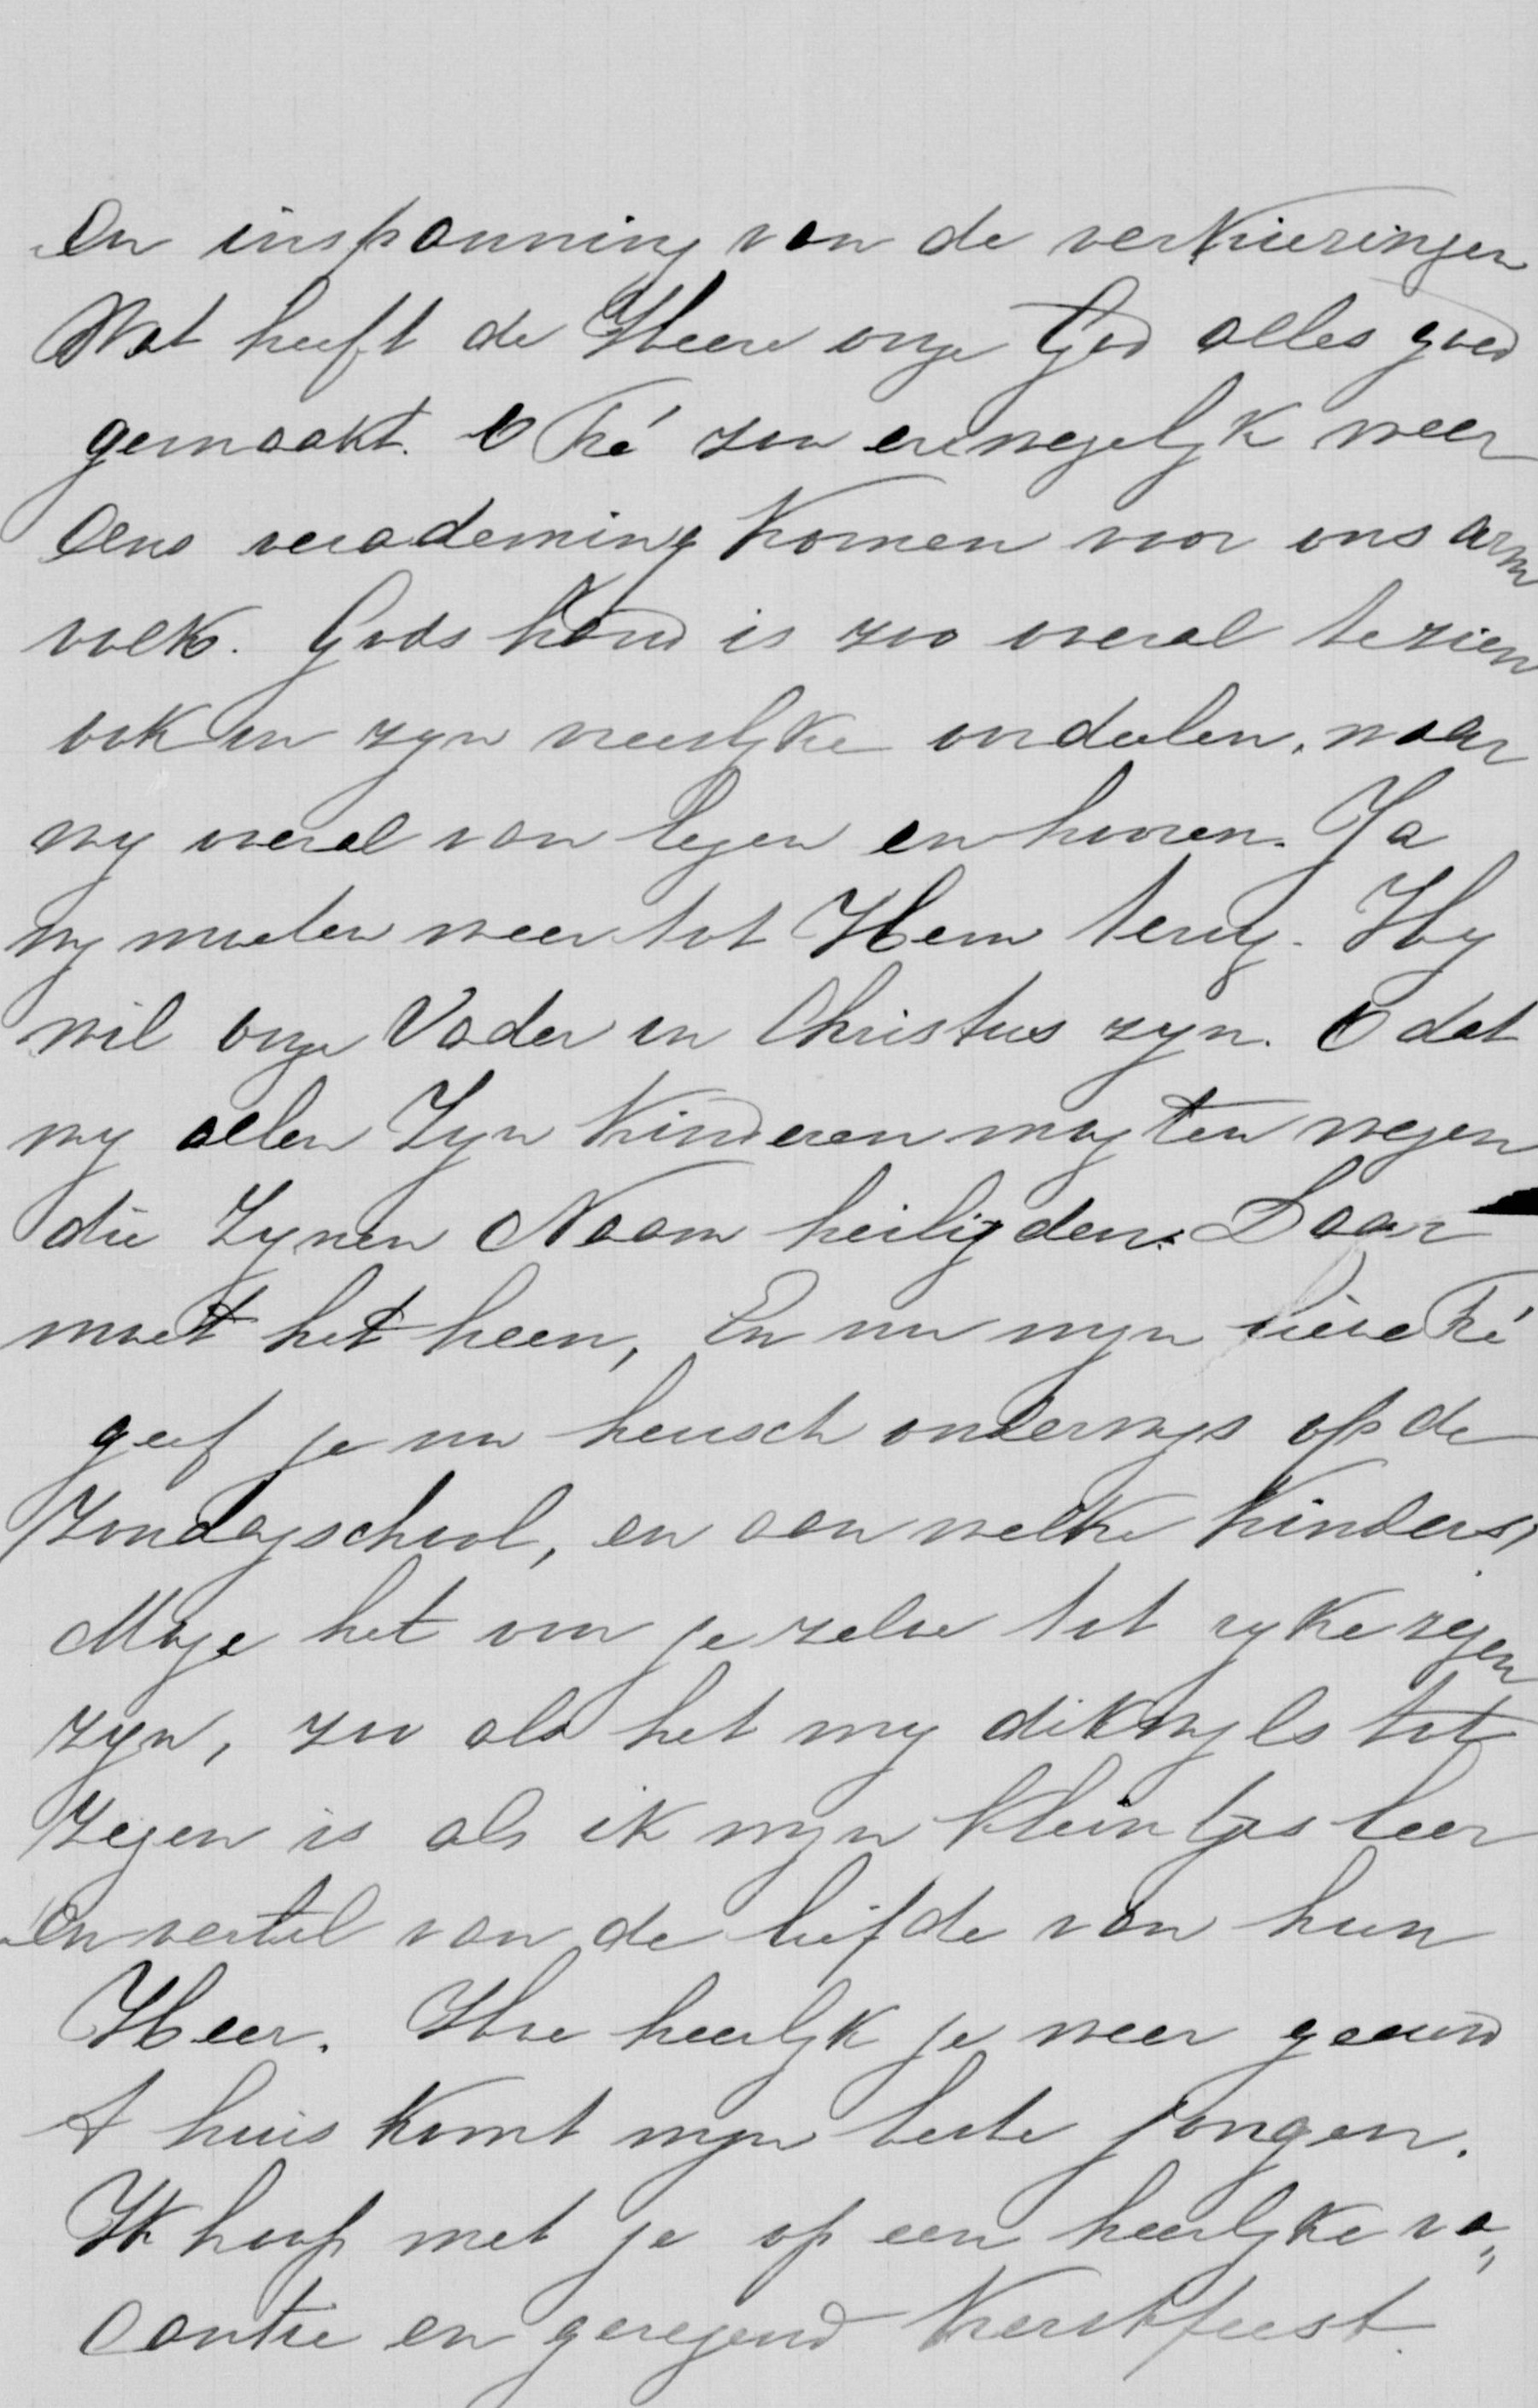 en inspanning van de verkiezingen
Wat heeft de Heere onze God alles goed
gemaakt. O Ké zou er mogelijk weer
eens verademing komen voor ons arm
volk. Gods hand is zoo overal te zien
ook in zyn vreeslyke oordeelen, waar
wy overal van lezen en hooren. Ja
wy moeten weer tot Hem terug. Hy
wil onze Vader in Christus zyn. O dat
wy allen Zyn kinderen mogten wezen
die Zynen Naam heiligden. Daar
moet het heen, En nu myn lieve Ké
geef je nu heusch onderwys op de
Zondagschool, en aan welke kinders,
Moge het voor je zelve tot ryke zegen
zyn, zoo als het my dikwyls tot
zegen is als ik myn kleintjes leer
en vertel van de liefde van hun
Heer. Hoe heerlyk je weer gauw
t huis komt myn beste jongen.
Ik hoop met je op een heerlyke va„
cantie en gezegend Kerstfeest.